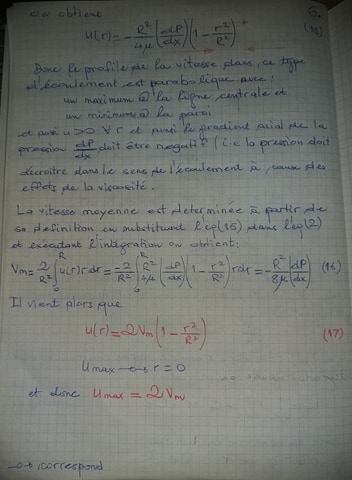 on obtient 6.
u(r) = -R²/4μ (dP/dx)(1 - r²/R²)
Donc le profile de la vitesse dans, ce type
d'écoulement est parabolique avec:
un maximum @ la ligne centrale et
un minimum @ la paroi
et avec u>0 ∀r et ainsi le gradient axial de la
pression dP/dx doit être negatif (i.e la pression doit
décroitre dans le sens de l'écoulement à cause des
effets de la viscosité.
La vitesse moyenne est determinée à partir de
sa definition en substituant l'eq(15) dans l'eq(2)
et exécutant l'intégration on obtient:
Vm = 2/R² ∫₀ᴿ u(r) r dr = -2/R² ∫₀ᴿ R²/4μ (dP/dx)(1 - r²/R²) r dr = -R²/8μ (dP/dx) (16)
Il vient alors que
u(r) = 2Vm (1 - r²/R²) (17)
umax → r = 0
et donc umax = 2Vm
→ : correspond